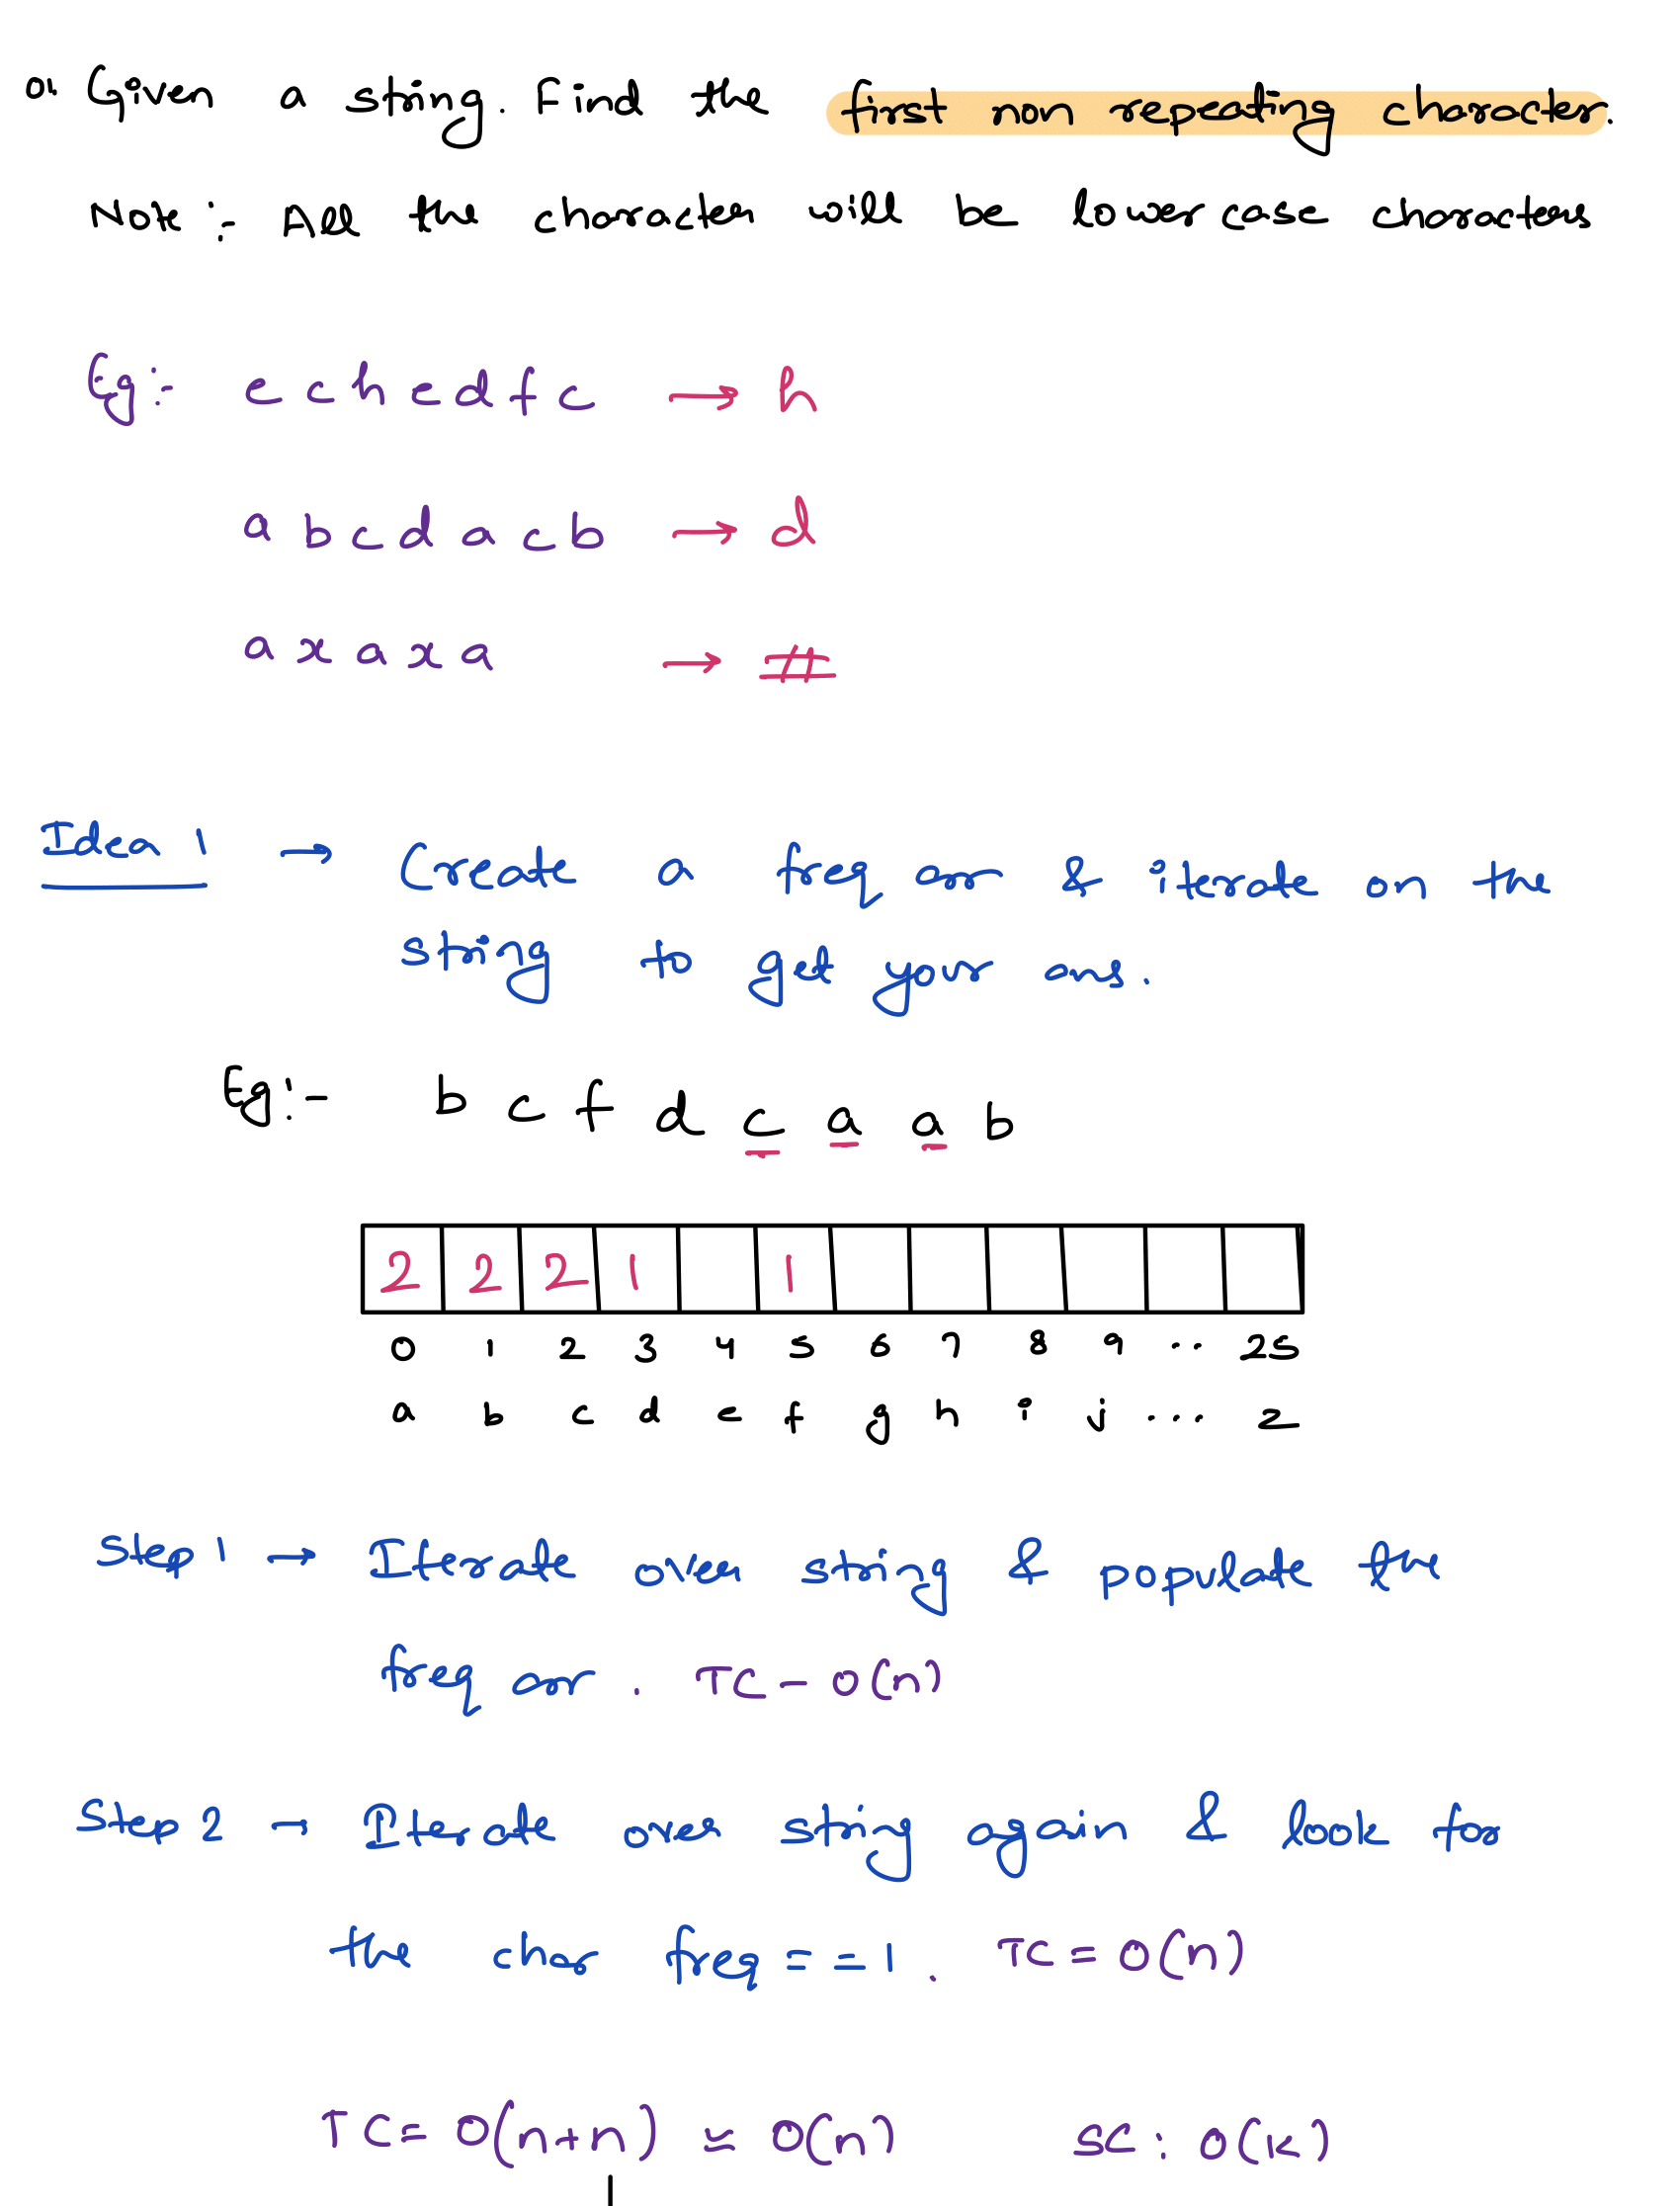 Q. Given a string. Find the first non repeating character.
Note :- All the character will be lowercase characters
Eg:- e c h e d f c → h
a b c d a c b → d
a x a x a → #
Idea 1 → Create a freq arr & iterate on the
string to get your ans.
Eg:- b c f d c a a b
2 2 2 1 1
0 1 2 3 4 5 6 7 8 9 .. 25
a b c d e f g h i j ... z
Step 1 → Iterate over string & populate the
freq arr. TC - O(n)
Step 2 → Iterate over string again & look for
the char freq == 1. TC = O(n)
TC = O(n+n) ≈ O(n) SC : O(k)